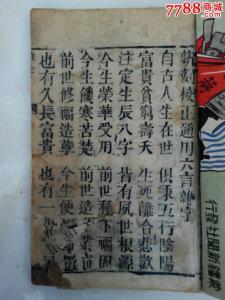 7788收藏
新刻校正通用六言雜字
自古人生在世 俱秉五行陰陽
富貴貧窮壽夭 生死離合悲歡
注定生辰八字 皆有夙世根源
今生榮華受用 前世種下福因
今生饑寒苦楚 前世造
前世修福造孽 今生便
也有久長富貴 也有一
蒙疆新聞社發行